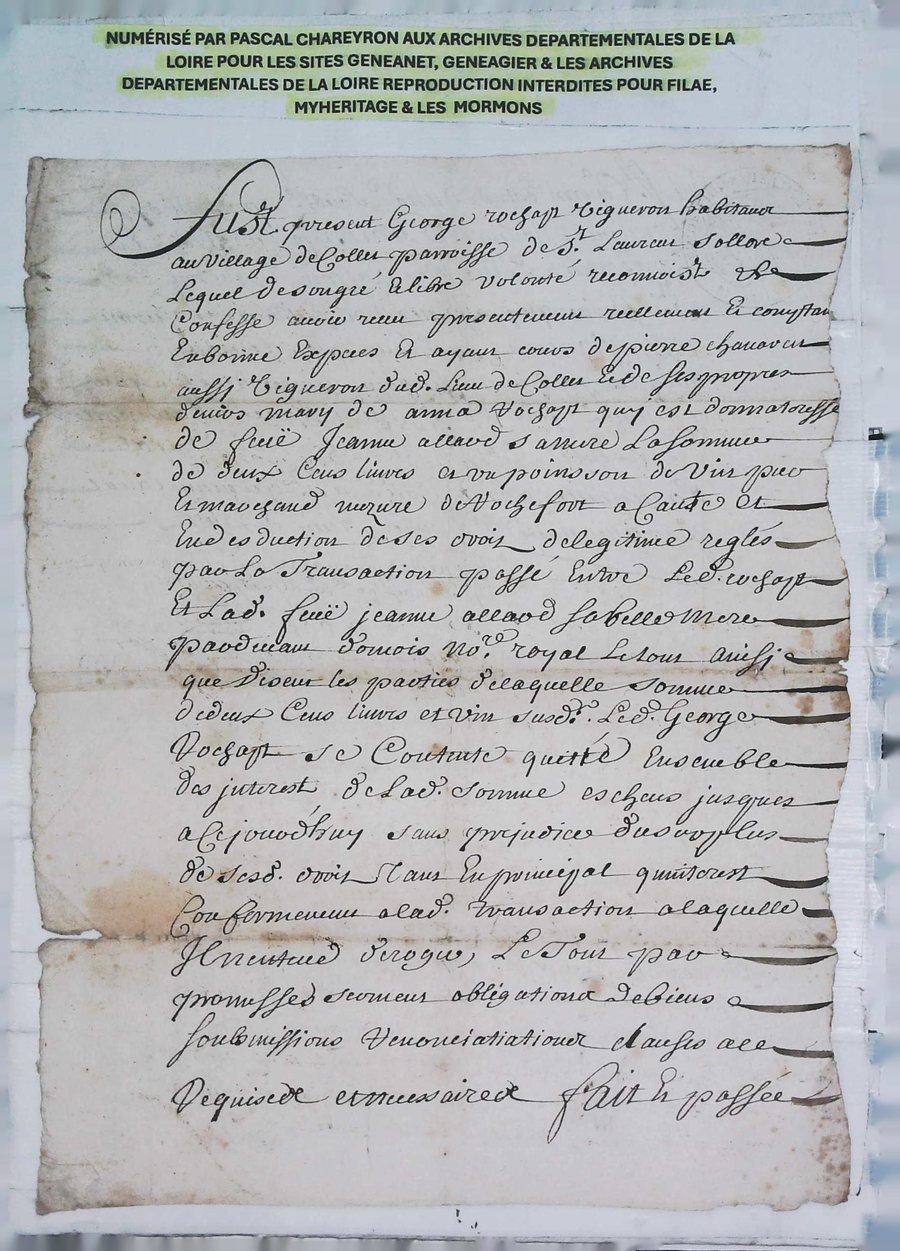 NUMÉRISÉ PAR PASCAL CHAREYRON AUX ARCHIVES DEPARTEMENTALES DE LA
LOIRE POUR LES SITES GENEANET, GENEAGIER & LES ARCHIVES
DEPARTEMENTALES DE LA LOIRE REPRODUCTION INTERDITES POUR FILAE,
MYHERITAGE & LES MORMONS
Fust present George rochapt Vigneron habitant
au Village de Collet parroisse de St. Laurent Sollore
Lequel de son gré et libre volonté reconnoist et
Confesse avoir receu presentement reellement Et comptan
En bonne Especes Et ayant cours de pierre
aussi Vigneron dud. Lieu de Collet Et de ses propres
deniers mary de anna Rochapt quy est donnateresse
de feuë Jeanne allard La somme
de deux Cens livres et un poinson de Vin pur
Et marchand mezure de Rochefort a Cause et
En desduction de ses droit de legitime reglés
par La Transaction passé Entre Led. rochapt
Et Lad. feuë jeanne allard sa belle Mere
pardevant no.re royal Le tout ainsi
que disent les parties de laquelle somme
de deux Cens livres et vin susd.t Led. George
Rochapt se Contente quitté Ensemble
des interest de Lad. somme escheus jusques
a Ce jourdhuy sans prejudice du surplus
de sesd. droit Tant En principal quinterest
Conformement a lad. Transaction a laquelle
Il nentend deroger, Le Tout par
promesses serment obligations de biens
soubmissions Renonciations clauses a ce
Requises et necessaires fait Et passée